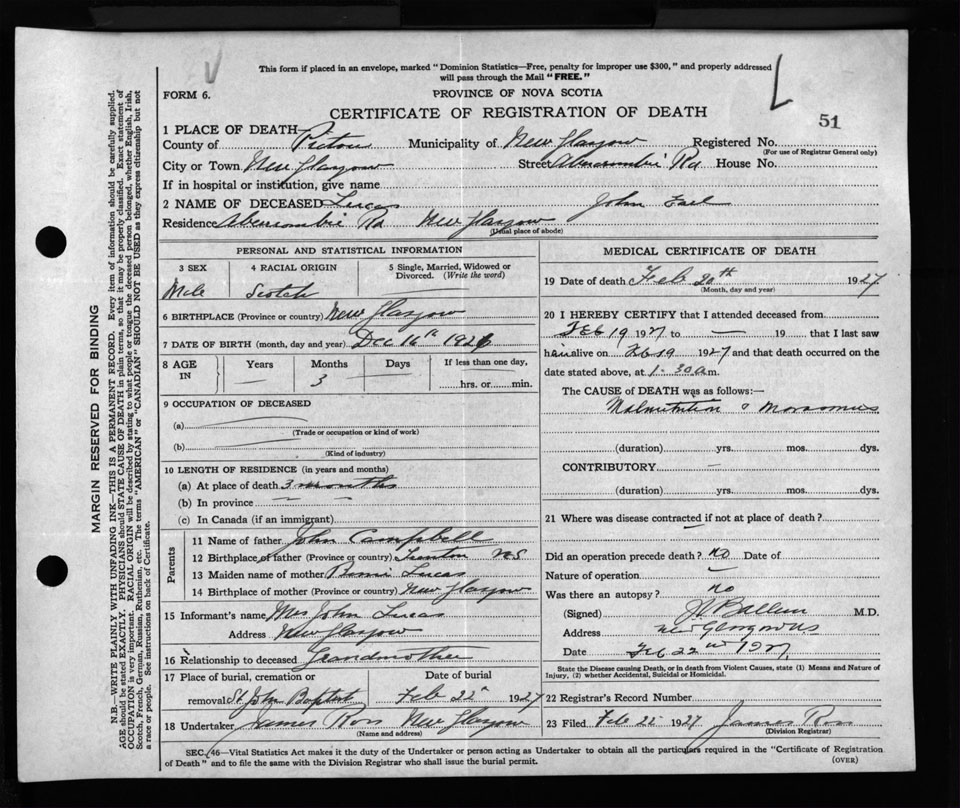 This form if placed in an envelope, marked "Dominion Statistics—Free, penalty for improper use $300," and properly addressed
will pass through the Mail "FREE."
FORM 6.
PROVINCE OF NOVA SCOTIA
CERTIFICATE OF REGISTRATION OF DEATH
51
1 PLACE OF DEATH
County of Pictou Municipality of New Glasgow Registered No.
(For use of Registrar General only)
City or Town New Glasgow Street Abercrombie Rd House No.
If in hospital or institution, give name
2 NAME OF DECEASED Lucas John Earl
Residence Abercrombie Rd New Glasgow
(Usual place of abode)
PERSONAL AND STATISTICAL INFORMATION
3 SEX 4 RACIAL ORIGIN 5 Single, Married, Widowed or
Divorced. (Write the word)
Male Scotch
6 BIRTHPLACE (Province or country) New Glasgow
7 DATE OF BIRTH (month, day and year) Dec 16th 1926
8 AGE IN Years Months Days If less than one day,
— 3 — hrs. or min.
9 OCCUPATION OF DECEASED
(a)
(Trade or occupation or kind of work)
(b)
(Kind of industry)
10 LENGTH OF RESIDENCE (in years and months)
(a) At place of death 3 months
(b) In province — —
(c) In Canada (if an immigrant)
Parents
11 Name of father John Campbell
12 Birthplace of father (Province or country) Trenton NS
13 Maiden name of mother Lucas
14 Birthplace of mother (Province or country) New Glasgow
15 Informant's name Mrs John Lucas
Address New Glasgow
16 Relationship to deceased Grandmother
17 Place of burial, cremation or Date of burial
removal St John Baptist Feb 22nd 1927
18 Undertaker James Ross New Glasgow
(Name and address)
MEDICAL CERTIFICATE OF DEATH
19 Date of death Feb 20th 1927
(Month, day and year)
20 I HEREBY CERTIFY that I attended deceased from
Feb 19 1927 to — 19 that I last saw
him alive on Feb 19 1927 and that death occurred on the
date stated above, at 1-30 a m.
The CAUSE of DEATH was as follows:—
Malnutrition & Marasmus
(duration) yrs. mos. dys.
CONTRIBUTORY —
(duration) yrs. mos. dys.
21 Where was disease contracted if not at place of death?
—
Did an operation precede death? no Date of
Nature of operation —
Was there an autopsy? no
(Signed) M.D.
Address New Glasgow NS
Date Feb 22nd 1927
State the Disease causing Death, or in death from Violent Causes, state (1) Means and Nature of
Injury, (2) whether Accidental, Suicidal or Homicidal.
22 Registrar's Record Number
23 Filed Feb 22 1927 James Ross
(Division Registrar)
SEC. 46—Vital Statistics Act makes it the duty of the Undertaker or person acting as Undertaker to obtain all the particulars required in the "Certificate of Registration
of Death" and to file the same with the Division Registrar who shall issue the burial permit.
(OVER)
MARGIN RESERVED FOR BINDING
N.B.—WRITE PLAINLY WITH UNFADING INK—THIS IS A PERMANENT RECORD. Every item of information should be carefully supplied.
AGE should be stated EXACTLY. PHYSICIANS should STATE CAUSE OF DEATH in plain terms, so that it may be properly classified. Exact statement of
OCCUPATION is very important. RACIAL ORIGIN will be described by stating to what people or tongue the deceased person belonged, whether English, Irish,
Scotch, French, German, Russian, Ruthenian, etc. The terms "AMERICAN" or "CANADIAN" SHOULD NOT BE USED as they express citizenship but not
a race or people. See instructions on back of Certificate.